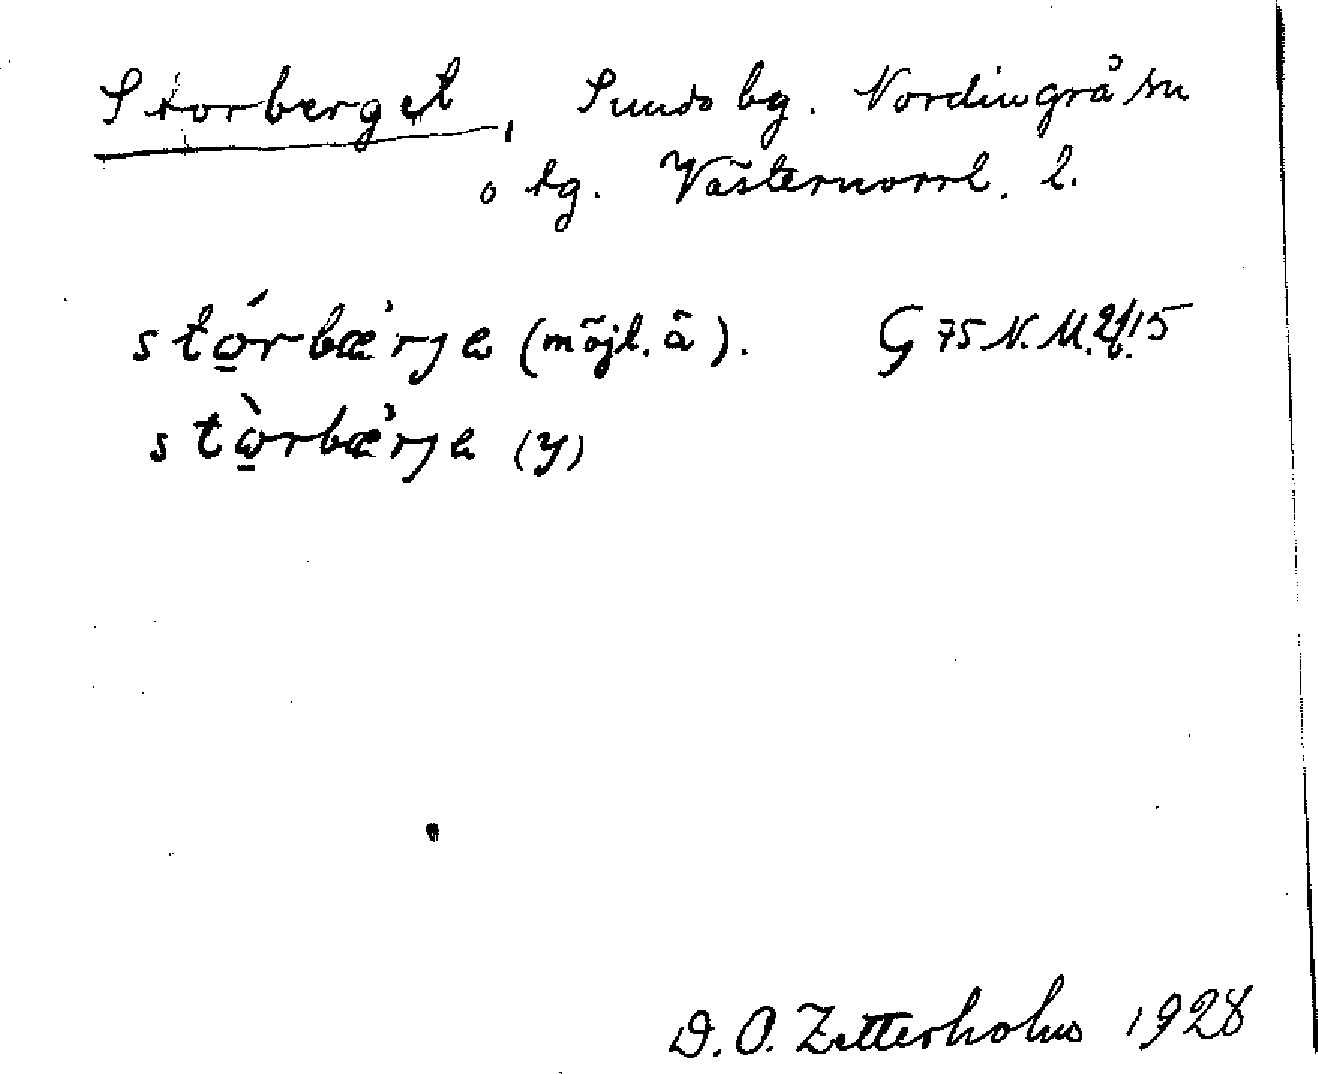 Storberget, Sunds bg. Nordingrå sn
o tg. Västernorrl. l.
stó̲rbæ̀rjɐ (möjl. ä). G 75 N. M. 2f. 15
stò̲rbæ̀rjɐ (y)
D. O. Zetterholm 1928